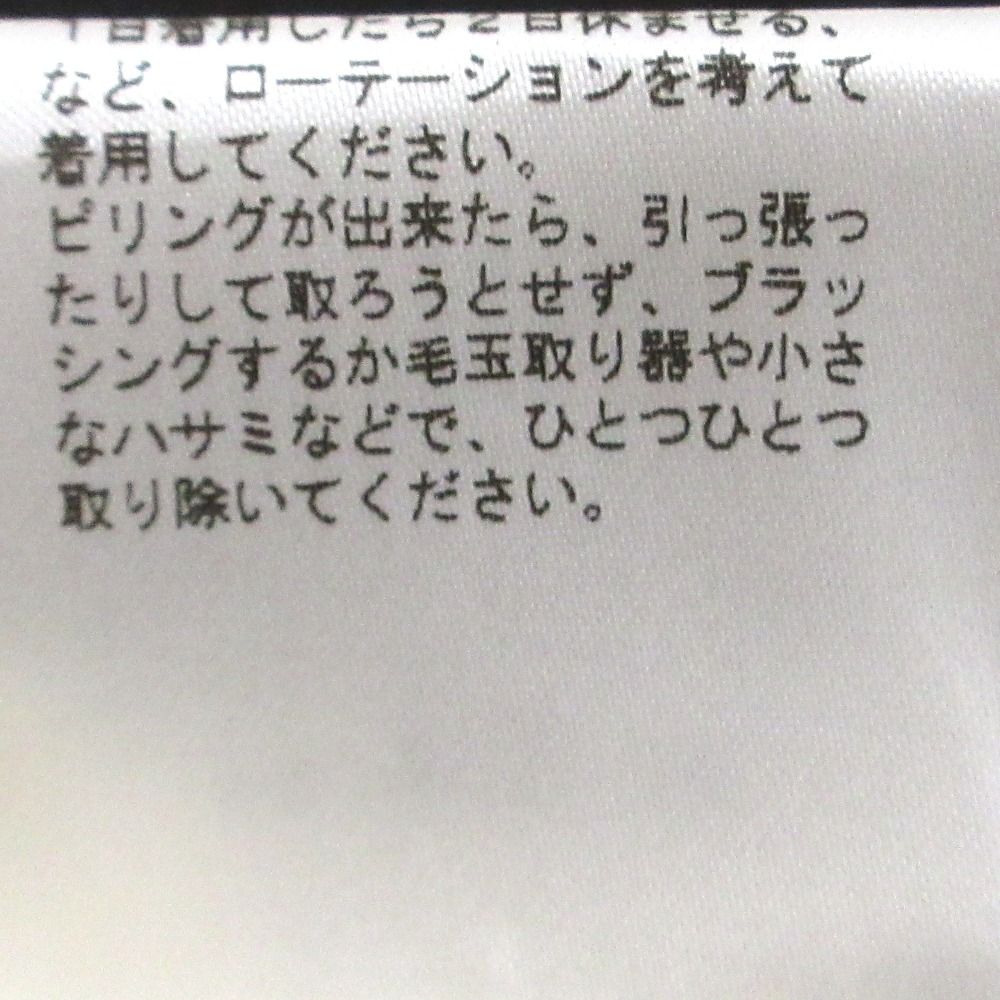 1日着用したら2日休ませる、
など、ローテーションを考えて
着用してください。
ピリングが出来たら、引っ張っ
たりして取ろうとせず、ブラッ
シングするか毛玉取り器や小さ
なハサミなどで、ひとつひとつ
取り除いてください。